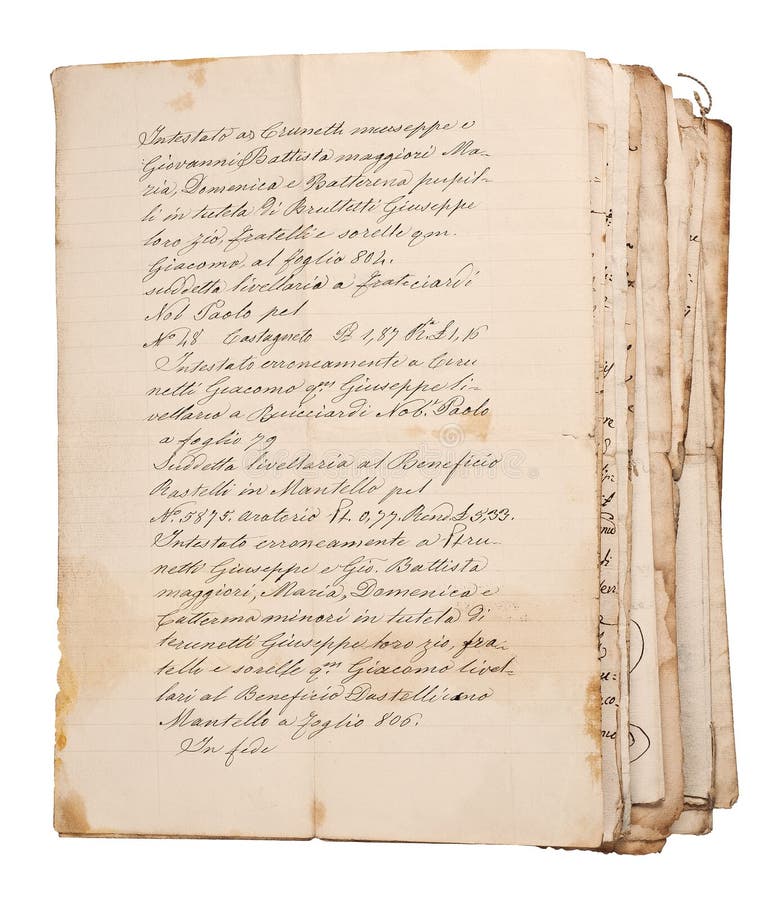 Intestato a Crunetti Giuseppe e
Giovanni Battista maggiori Ma-
ria, Domenica e Batterina pupil-
li in tutela di Bruttetti Giuseppe
loro zio, fratelli e sorelle qm.
Giacomo, al foglio 804.
suddetta livellaria a Fraticiardi
Nob Paolo pel
No 48 Castagneto P 1,87 Rta £ 1,16
Intestato erroneamente a Ceru
netti Giacomo qm Giuseppe li-
vellario a Ricciardi Nob. Paolo
a foglio 79
Suddetta livellaria al Beneficio
Rastelli in Mantello pel
No. 5875. aratorio Pt. 0,77. Rend. £ 5,33.
Intestato erroneamente a
netti Giuseppe e Gio. Battista
maggiori, Maria, Domenica e
Catterina minori in tutela di
terunetti Giuseppe loro zio, fra-
telli e sorelle qm Giacomo livel-
lari al Beneficio
Mantello a foglio 806.
In fede
dreamstime